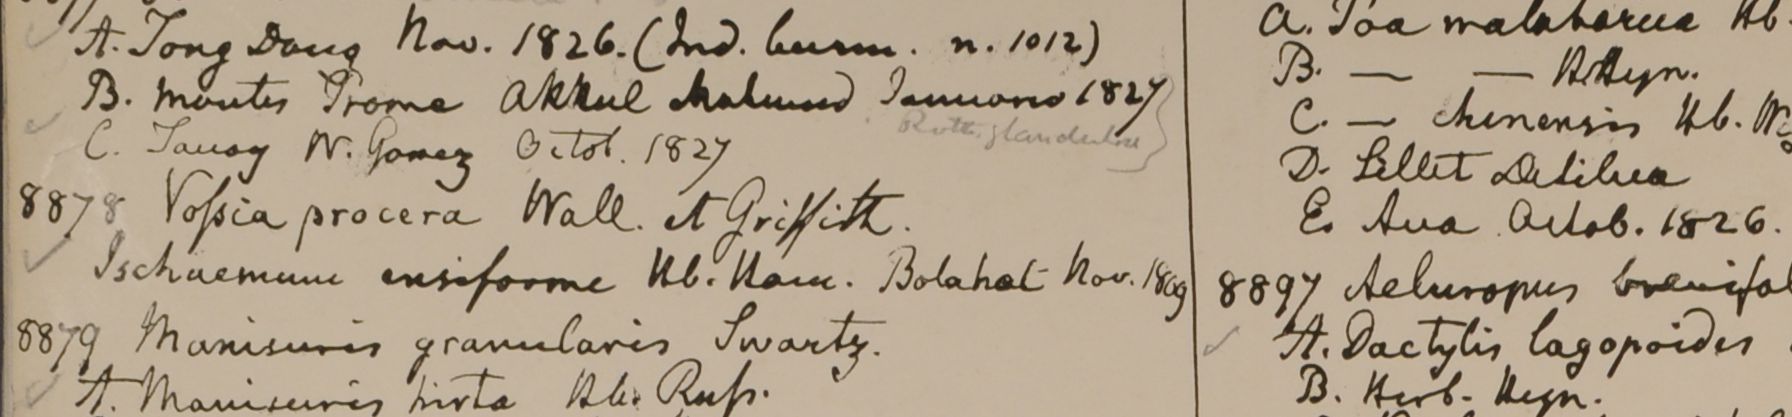 A. Tong Doung Nov. 1826. (Ind. burm. n. 1012)
B. Montes Prome Akkul Mahmud Januario 1827
C. Tavoy W. Gomez Octob. 1827
Rottb. glandulosa
8878 Voſsia procera Wall. et Griffith.
Ischaemum ensiforme Hb. Ham. Bolahat Nov. 1809
8879 Manisuris granularis Swartz.
A. Manisuris hirta Hb. Ruſs.
a. Poa malabarica Hb
B. — — Hb Heyn.
C. — chinensis Hb. W
D. Sillet Desilva
E. Ava Octob. 1826.
8897 Aeluropus brevifol
A. Dactylis lagopoides
B. Herb. Heyn.